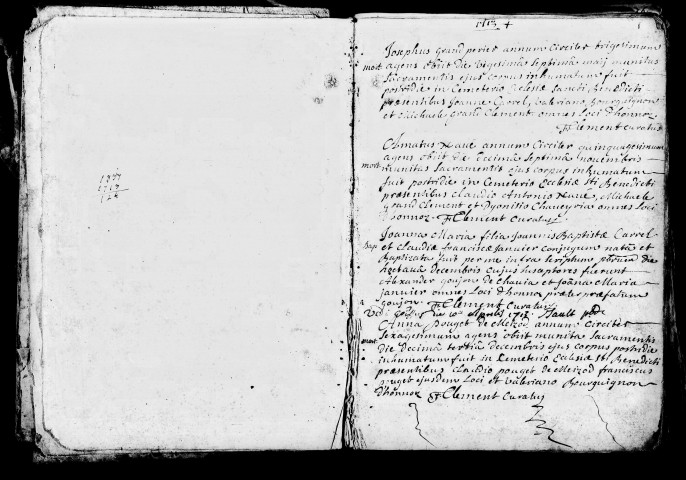 1713
Josephus grand perret annum circiter trigesimum
mort agens obiit die vigesima septima maij munitus
sacramentis ejus corpus inhumatum fuit
postridie in Cemeterio Ecclesiæ sancti Benedicti
præsentibus Joanne Valeriano Bourguignon
et Michaele grand Clement omnes Loci d'honnoz
Clement curatus
annum circiter quinquagesimum
mort agens obiit die decima septima novembris
munitus sacramentis ejus corpus inhumatum
fuit postridie in Cemeterio Ecclesiæ sti Benedicti
præsentibus Claudio Antonio Michaele
grand Clement et Dyonisio omnes Loci
d'honnoz Clement Curatus
Joanna Maria filia Joannis Baptistæ Carrel
Bap et Claudiæ Franciscæ Janvier conjugum nata et
Baptizata fuit per me infra scriptum die
octava decembris cujus susceptores fuerunt
Alexander goujon de et Joana Maria
janvier omnes Loci d'honnoz præter præfatum
goujon Clement Curatus
Anna Pouget de Meizod annum Circiter
sexagesimum agens obiit munita sacramentis
mort die decima tertia decembris ejus corpus postridie
inhumatum fuit in Cemeterio Ecclesiæ sti Benedicti
præsentibus Claudio pouget de Meizod franciscus
pouget ejusdem Loci et Valeriano Bourguignon
d'honnoz Clement Curatus
1713